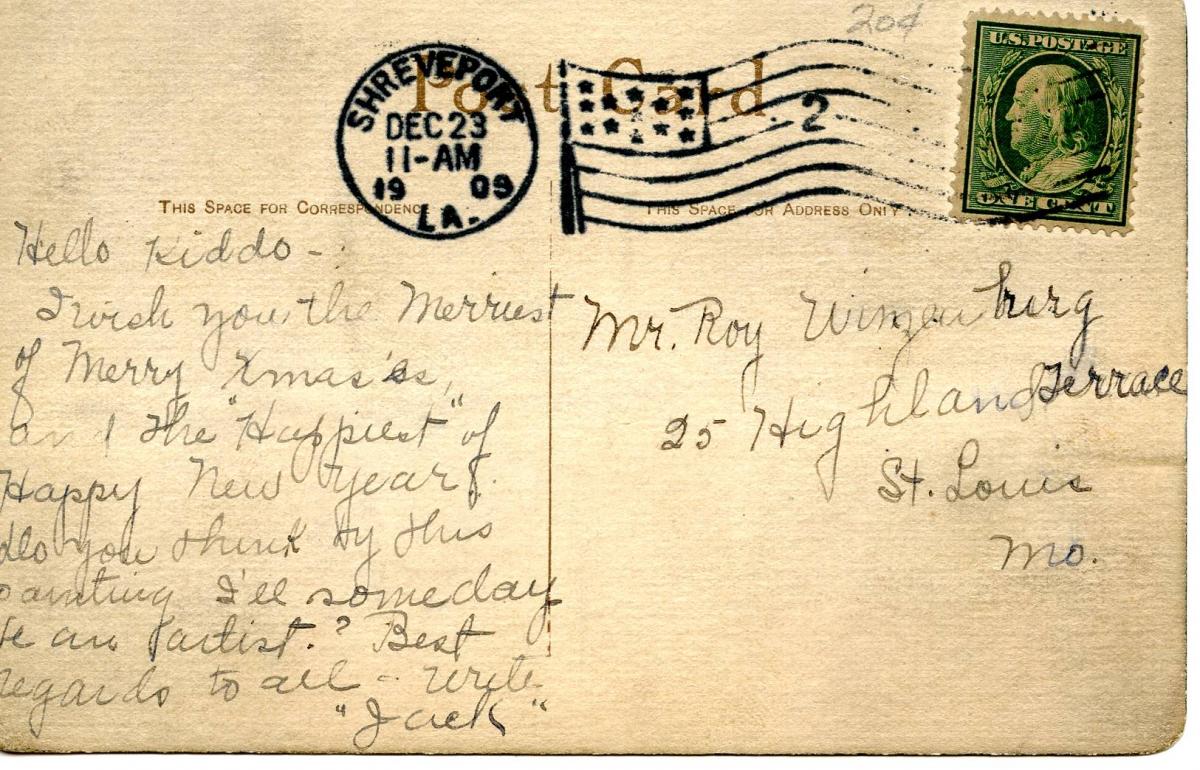 20¢
Post Card.
U.S. POSTAGE
ONE CENT
SHREVEPORT
DEC 23
11-AM
1909
LA.
2
THIS SPACE FOR CORRESPONDENCE
THIS SPACE FOR ADDRESS ONLY
Hello Kiddo -
I wish you the Merriest
of Merry Xmas'es,
and the "Happiest" of
Happy New Years.
Do you think by this
painting I'll someday
be an artist? Best
regards to all - write
"Jack"
Mr. Roy
25 Highland Terrace
St. Louis
Mo.